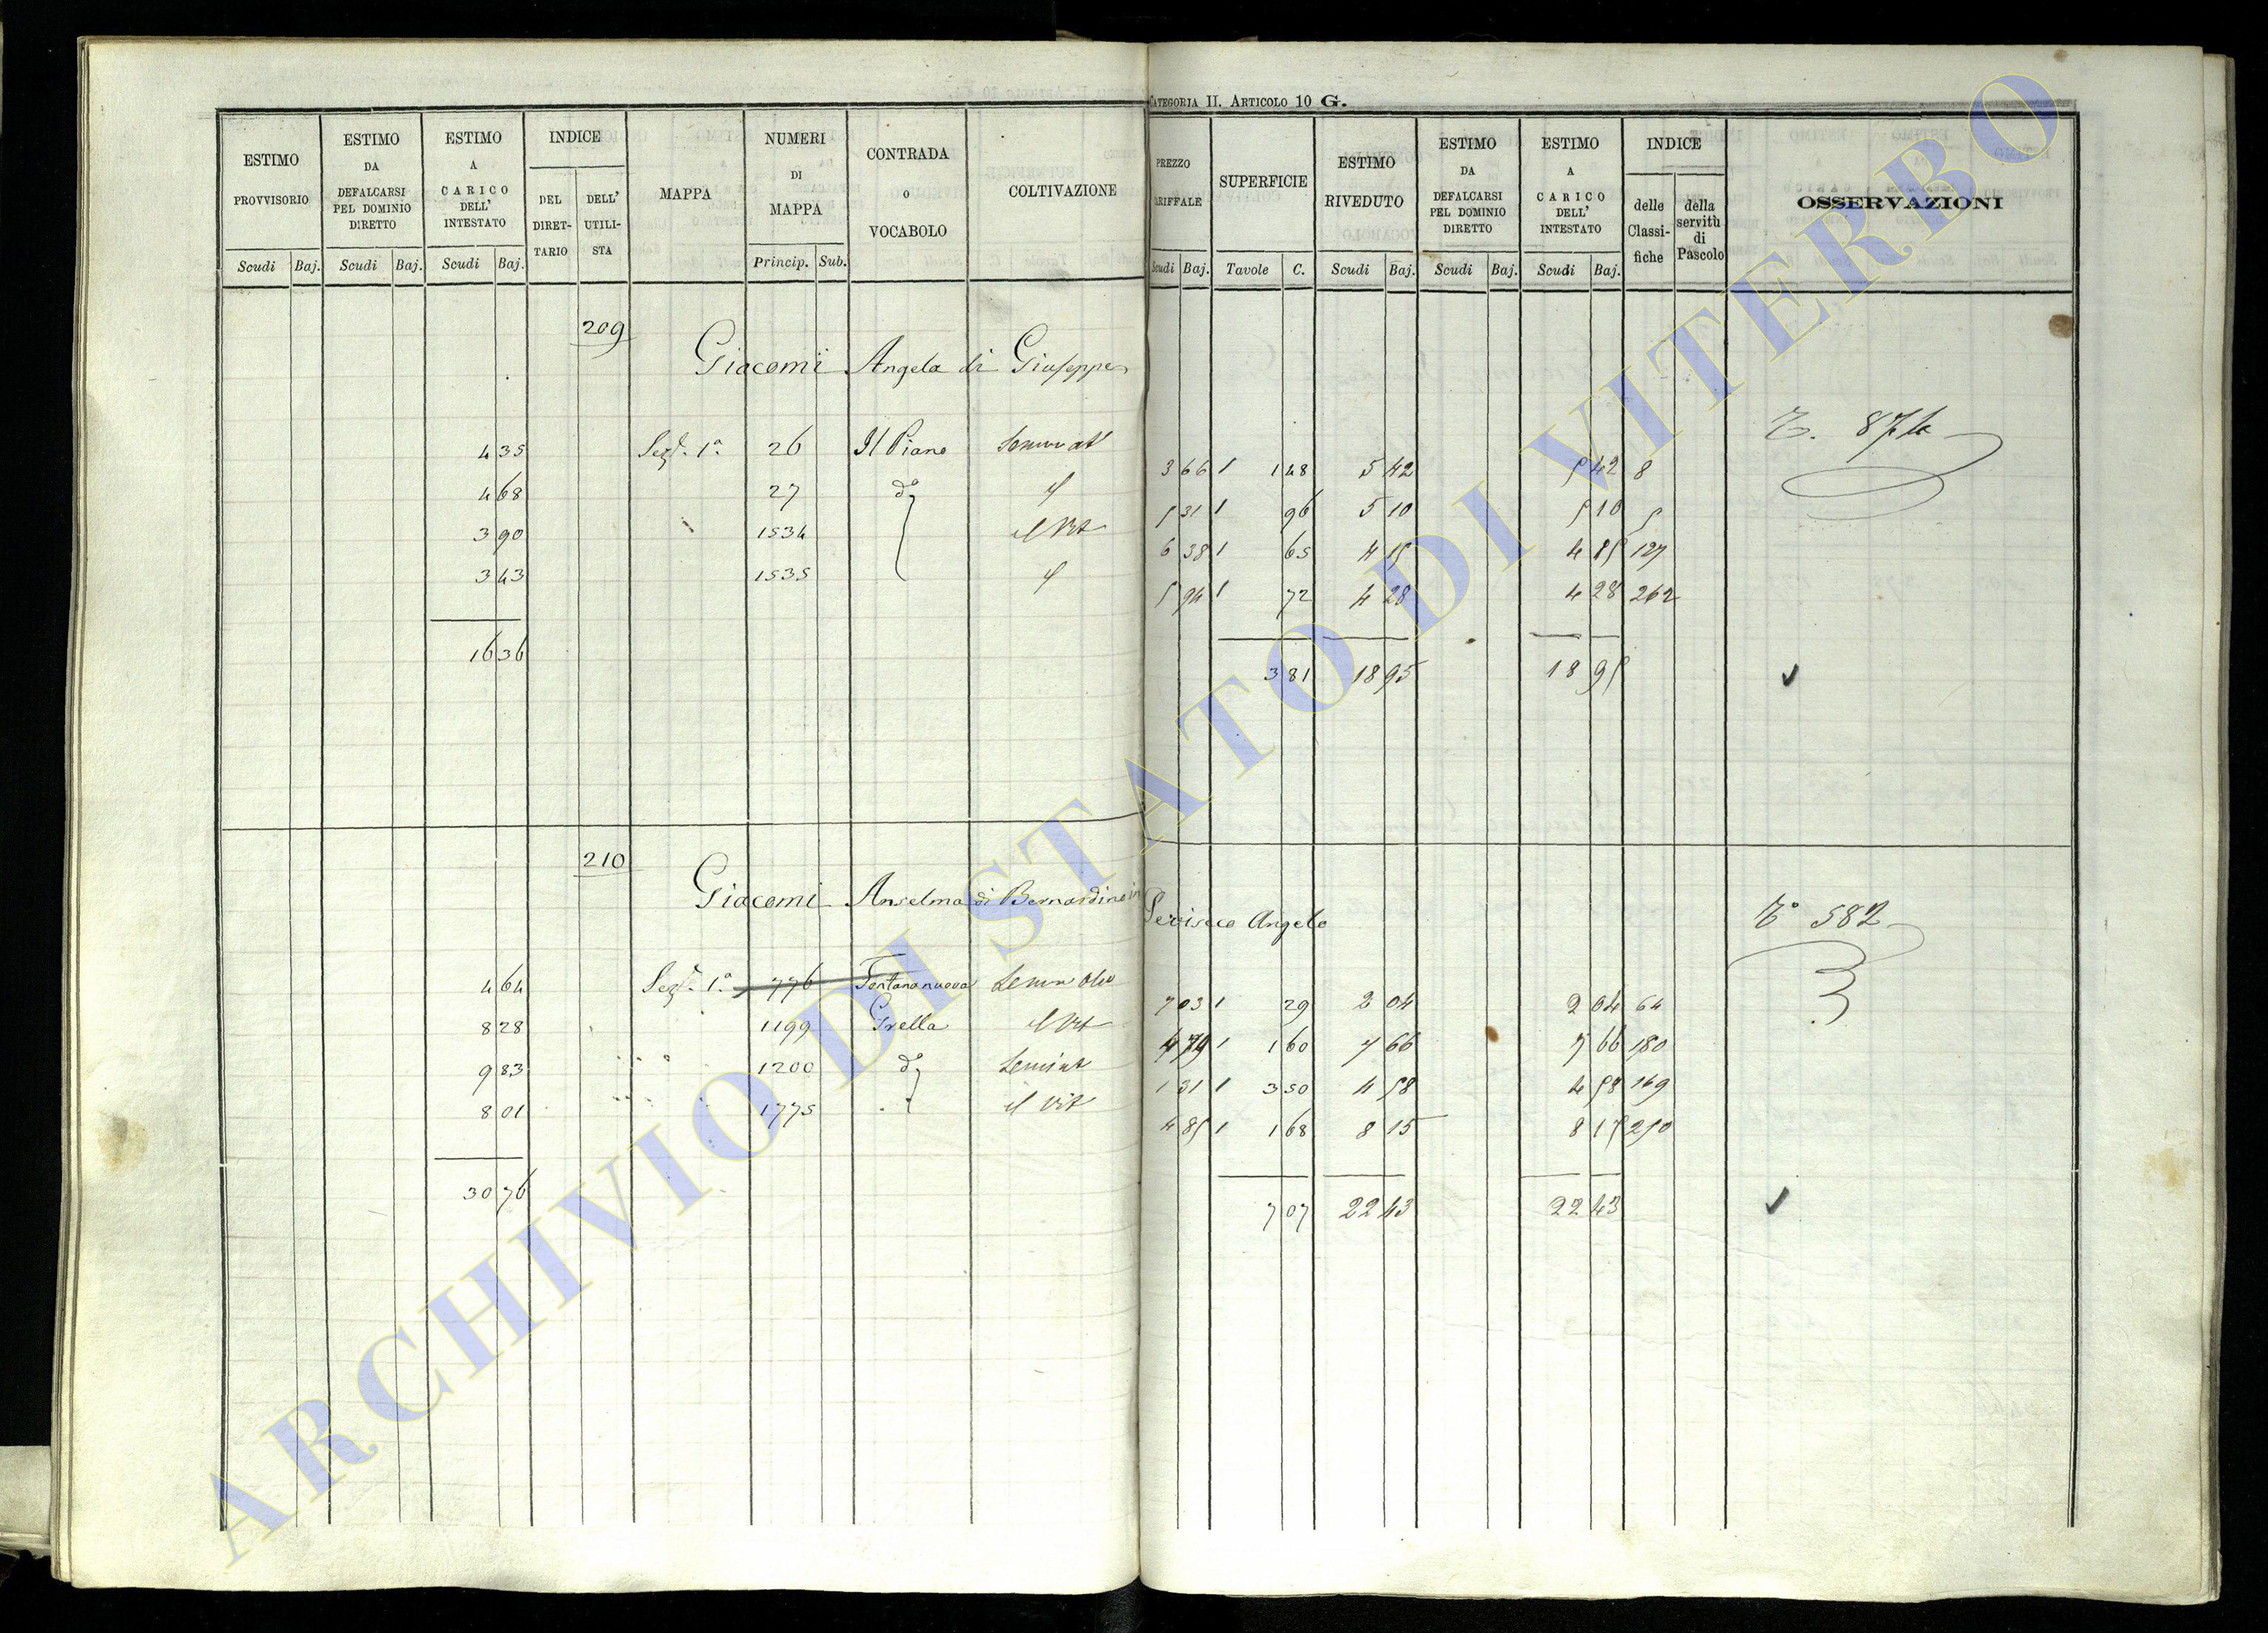 CATEGORIA II. ARTICOLO 10 G.
ESTIMO PROVVISORIO Scudi Baj.
ESTIMO DA DEFALCARSI PEL DOMINIO DIRETTO Scudi Baj.
ESTIMO A CARICO DELL' INTESTATO Scudi Baj.
INDICE DEL DIRET- TARIO DELL' UTILI- STA
MAPPA
NUMERI DI MAPPA Princip. Sub.
CONTRADA o VOCABOLO
COLTIVAZIONE
PREZZO TARIFFALE Scudi Baj.
SUPERFICIE Tavole C.
ESTIMO RIVEDUTO Scudi Baj.
ESTIMO DA DEFALCARSI PEL DOMINIO DIRETTO Scudi Baj.
ESTIMO A CARICO DELL' INTESTATO Scudi Baj.
INDICE delle Classi- fiche della servitù di Pascolo
OSSERVAZIONI
209
Giacomi Angela di Giuseppe
4 35 Sez. 1ª 26 Il Piano 3 66 1 1 48 5 42 5 42 8
4 68 27 dº 5 31 1 96 5 10 5 10 5
3 90 1534 6 38 1 65 4 15 4 15 127
3 43 1535 5 94 1 72 4 28 4 28 262
16 36 3 81 18 95 18 95
210
Giacomi Anselma di Bernardino in Perisico Angelo
582
4 64 Sez. 1ª 776 Fontananuova 7 03 1 29 2 04 2 04 64
8 28 1199 Grella 4 79 1 1 60 7 66 7 66 180
9 83 1200 dº 1 31 1 3 50 4 58 4 58 169
8 01 1775 4 85 1 1 68 8 15 8 15 250
30 76 7 07 22 43 22 43
ARCHIVIO DI STATO DI VITERBO